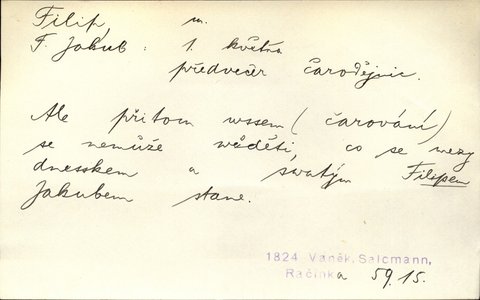 Filip, m.
F. Jakub : 1. května
předvečer čarodějnic.
Ale přitom wssem (čarování)
se nemůže wěděti, co se mezy
dnesskem a swatým Filipem
Jakubem stane.
1824 Vaněk, Salcmann,
Račinka 59.15.